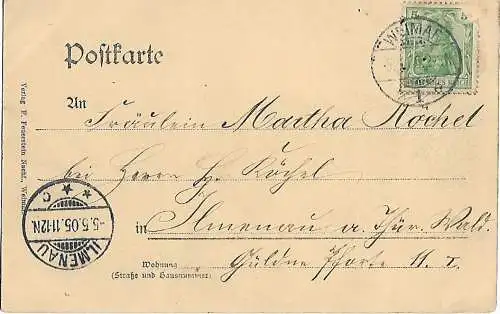 Postkarte
5
WEIMAR
1
An
Fräulein Martha Köchel
bei Herrn H. Köchel
in Ilmenau a. Thür. Wald.
Wohnung
(Straße und Hausnummer)
Güldne Pforte 11. I.
ILMENAU
-5.5.05.11-12N.
* * C
Verlag P. Feuerstein Nachf., Weimar